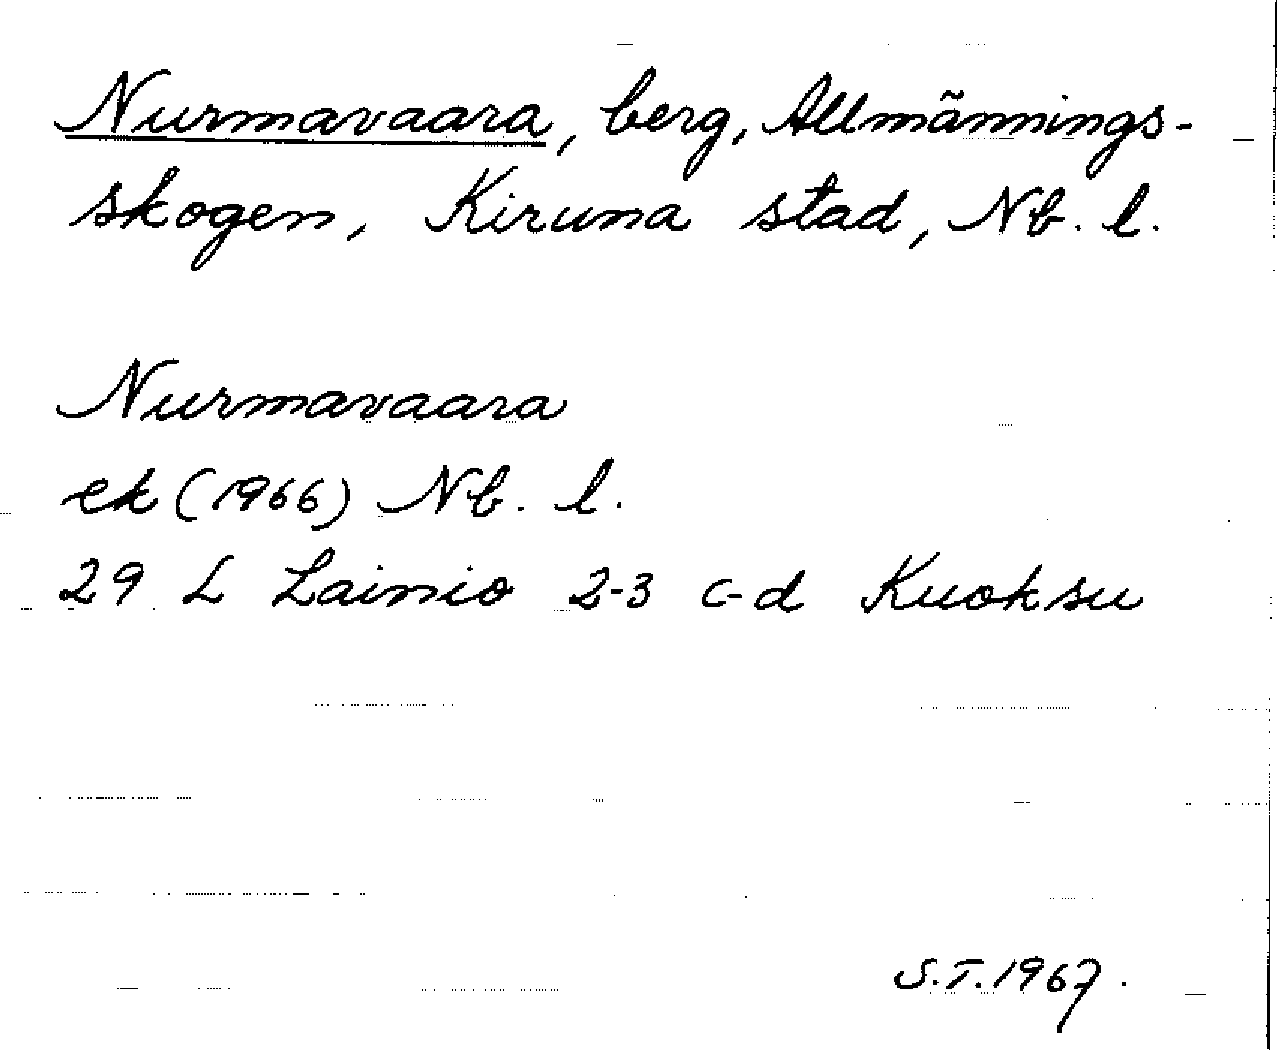 Nurmavaara, berg, Allmännings-
skogen, Kiruna stad, Nb. l.
Nurmavaara
ek (1966) Nb. l.
29 L Lainio 2-3 c-d Kuoksu
S.T. 1967.